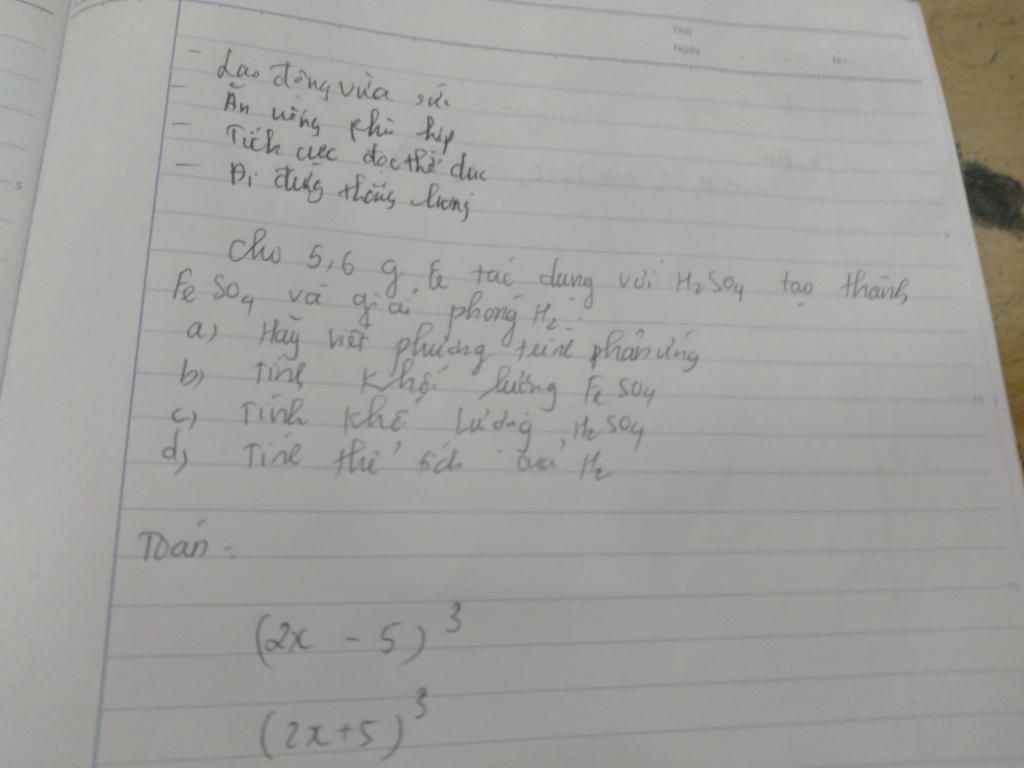 Thứ
Ngày
No.
- Lao động vừa sức
- Ăn uống phù hợp
- Tích cực đọc thể dục
- Đi đứng thẳng lưng
Cho 5,6 g Fe tác dung với H₂SO₄ tạo thành
FeSO₄ và giải phóng H₂:
a, Hãy viết phương trình phản ứng
b, Tính khối lượng FeSO₄
c, Tính khối lượng H₂SO₄
d, Tính thể tích của H₂
Toán:
(2x - 5)³
(2x+5)³